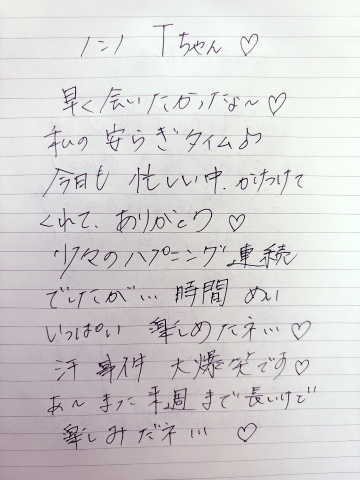 Tちゃん ♡
早く会いたかったな〜♡
私の安らぎタイム♪
今日も 忙しい中、かけつけて
くれて、ありがとう ♡
少々のハプニング連続
でしたが… 時間 めい
いっぱい 楽しめたネ… ♡
汗 事件 大爆笑です♡
あ〜 また 来週 まで 長いけど
楽しみだネ… ♡